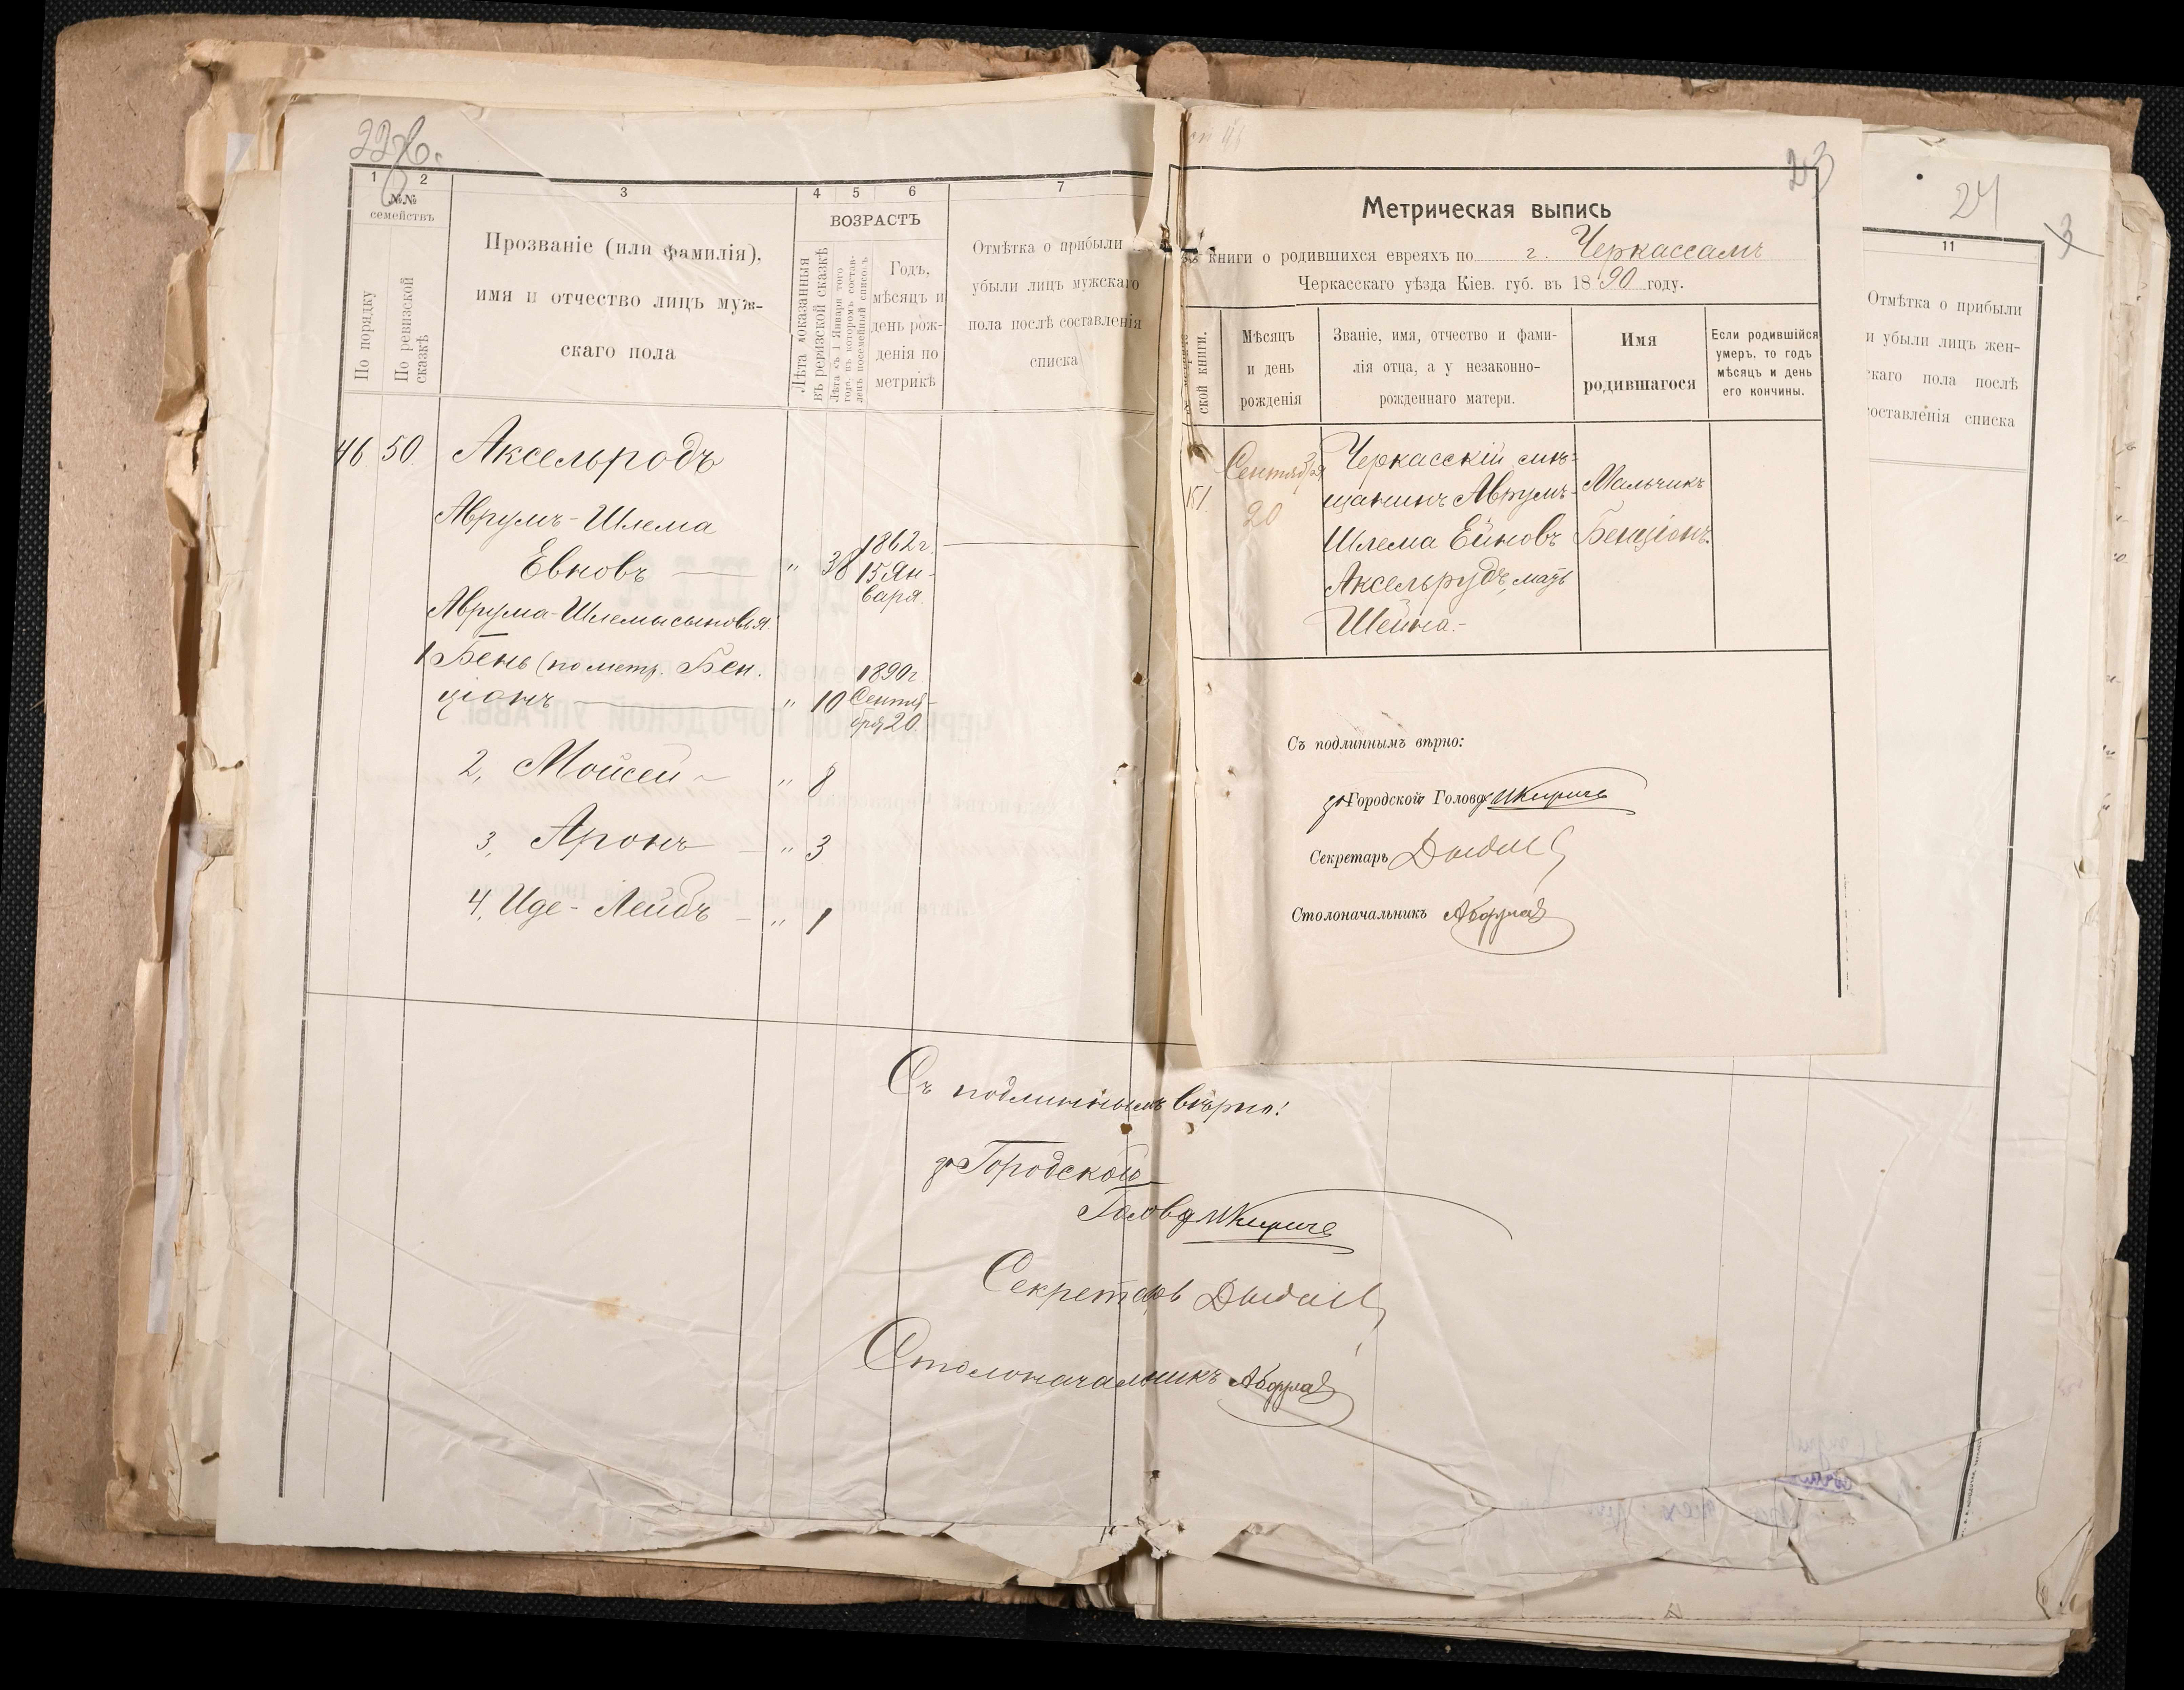 22 об.
1
2
3
4
5
6
7
№№
семействъ
По порядку
По ревизской
сказкѣ
Прозваніе (или фамилія),
имя и отчество лицъ муж-
скаго пола
ВОЗРАСТЪ
Лѣта показанныя
въ ревизской сказкѣ
Лѣта къ 1 Января того
года, въ которомъ состав-
ленъ посемейный списокъ
Годъ,
мѣсяцъ и
день рож-
денія по
метрикѣ
Отмѣтка о прибыли
убыли лицъ мужскаго
пола послѣ составленія
списка
46. 50. Аксельродъ
Аврумъ-Шлема
Евновъ — " 38 1862 г.
15 Ян-
варя.
Аврума-Шлемы сыновья:
1 Бень (по метр. Бен.
ціонъ — " 10 1890 г.
Сентя-
бря 20
2, Мойсей — " 8
3, Аронъ — " 3
4, Иде-Лейбъ — " 1
Съ подлиннымъ вѣрно:
Городского
Голову
Секретарь
Столоначальникъ
23
Метрическая выпись
книги о родившихся евреяхъ по г. Черкассамъ
Черкасскаго уѣзда Кіев. губ. въ 1890 году.
ской книги.
Мѣсяцъ
и день
рожденія
Званіе, имя, отчество и фами-
лія отца, а у незаконно-
рожденнаго матери.
Имя
родившагося
Если родившійся
умеръ, то годъ
мѣсяцъ и день
его кончины.
151.
Сентября
20
Черкасскій мѣ-
щанинъ Аврумъ-
Шлема Ейновъ
Аксельрудъ, мать
Шейна.-
Мальчикъ
Бенціонъ.
Съ подлиннымъ вѣрно:
Городской Голова
Секретарь
Столоначальникъ
24
3
11
Отмѣтка о прибыли
и убыли лицъ жен-
скаго пола послѣ
составленія списка